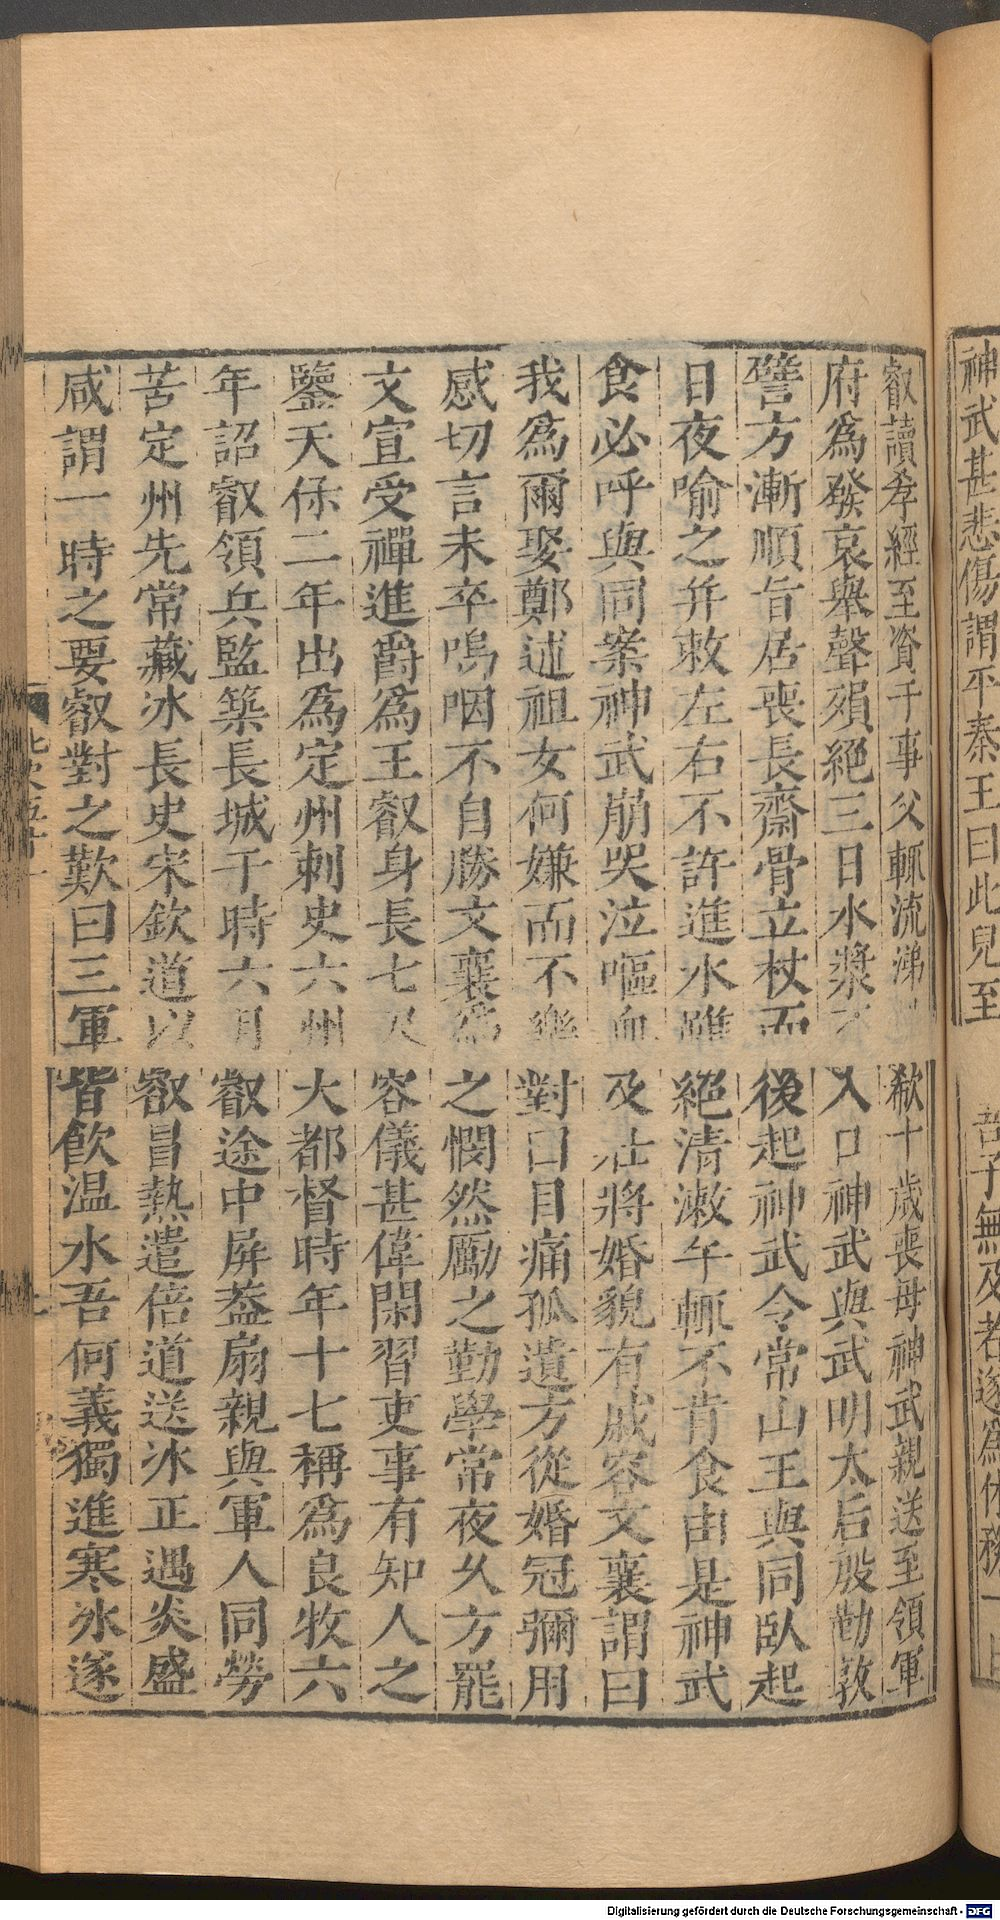 神武甚悲傷謂平秦王曰此兒至　吾子無及者遂爲休務一日
叡讀孝經至資于事父輒流涕欷十歲喪母神武親送至領軍
府爲發哀舉聲殞絕三日水漿不入口神武與武明太后殷勤敦
譬方漸順旨居喪長齋骨立杖而後起神武令常山王與同臥起
日夜喻之并敕左右不許進水雖絕清漱午輒不肯食由是神武
食必呼與同案神武崩哭泣嘔血及壯將婚貌有戚容文襄謂曰
我爲爾娶鄭述祖女何嫌而不樂對曰自痛孤遺方從婚冠彌用
感切言未卒嗚咽不自勝文襄爲之憫然勵之勤學常夜久方罷
文宣受禪進爵爲王叡身長七尺容儀甚偉閑習吏事有知人之
鑒天保二年出爲定州刺史六州大都督時年十七稱爲良牧六
年詔叡領兵監築長城于時六月叡途中屏蓋扇親與軍人同勞
苦定州先常藏冰長史宋欽道以叡冒熱遣倍道送冰正遇炎盛
咸謂一時之要叡對之歎曰三軍皆飲温水吾何義獨進寒冰遂
Digitalisierung gefördert durch die Deutsche Forschungsgemeinschaft - DFG